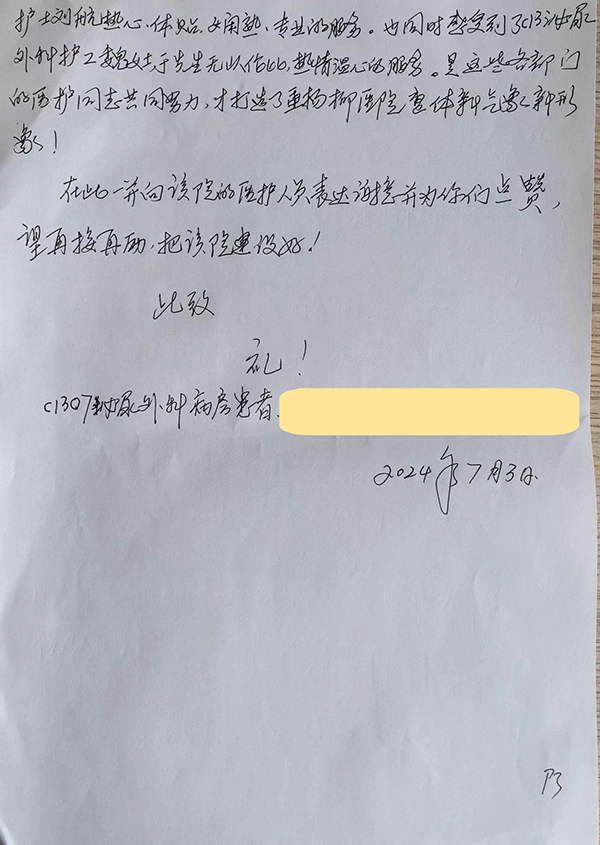 护士刘航热心、体贴、娴熟、专业的服务。也同时感受到了C13泌尿
外科护工魏 于先生无以伦比,热情温心的服务。是这些各部门
的医护同志共同努力,才打造了重扬柳医院整体新气象、新形
象!
在此一并向该院的医护人员表达谢意并为你们点赞,
望再接再励,把该院建设好!
此致
礼!
C1307泌尿外科病房患者:
2024年7月3日
P3